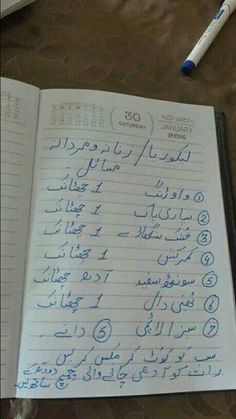 30
SATURDAY
JANUARY
2016
لیکوریا / زنانہ و مردانہ
مسائل
① 1 چھٹانک
② 1 چھٹانک
③ خشک سنگھاڑے 1 چھٹانک
④ کمرکس 1 چھٹانک
⑤ سفید آدھ چھٹانک
⑥ 1 چھٹانک
⑦ سبز الائچی ⑤ دانے
سب کو کوٹ کر مکس کر لیں
رات کو آدھی چائے والی چمچ دودھ کے
ساتھ لیں